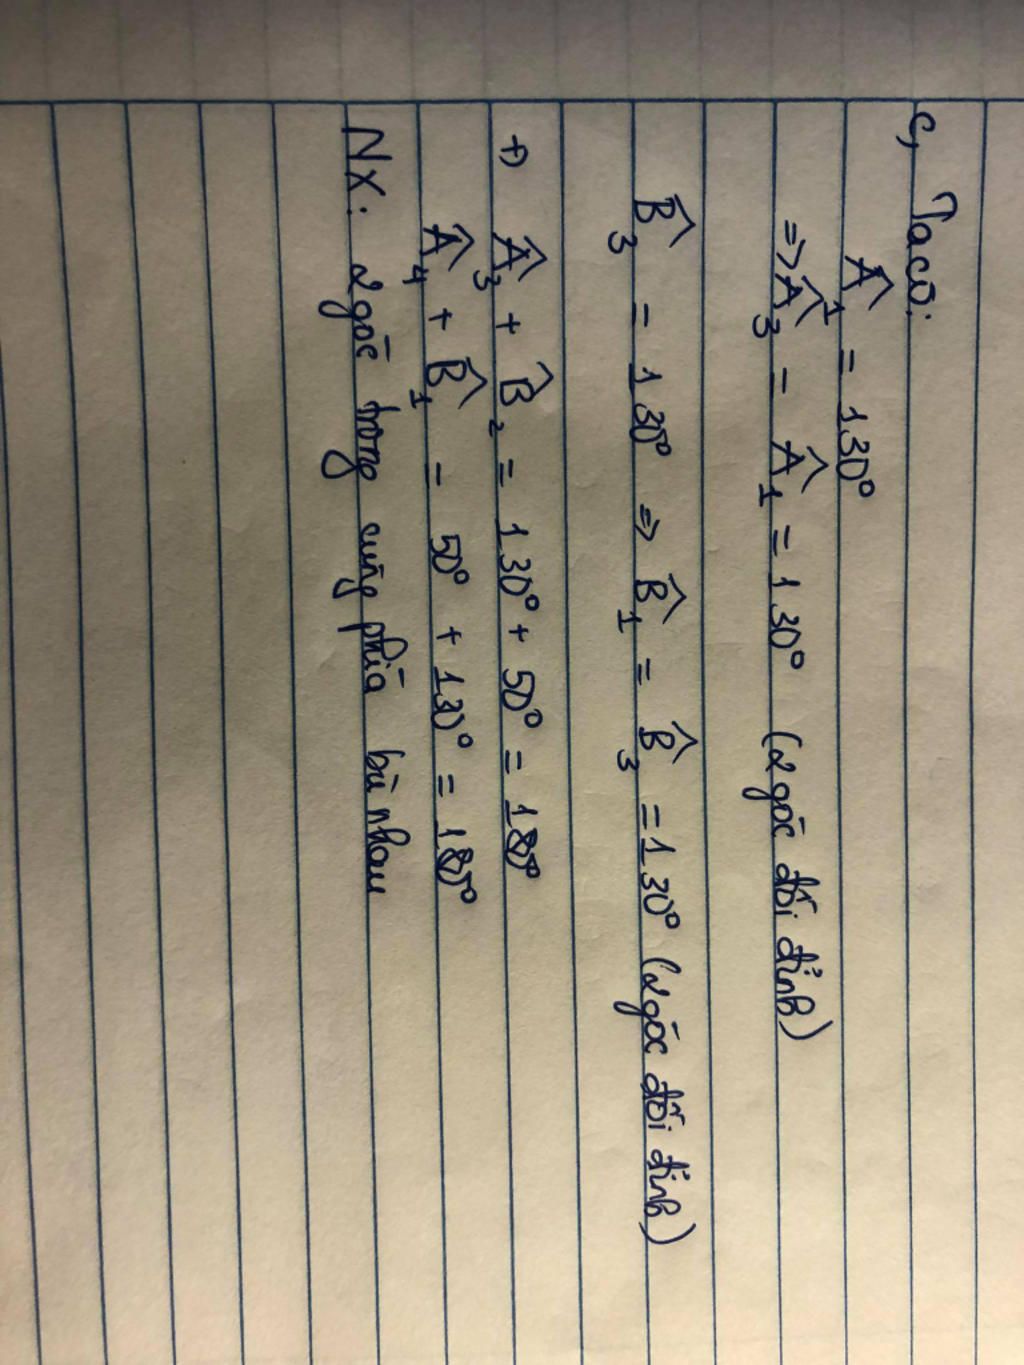 c, Ta có:
Â₁ = 130°
=> Â₃ = Â₁ = 130° (2 góc đối đỉnh)
B̂₃ = 130° => B̂₁ = B̂₃ = 130° (2 góc đối đỉnh)
+) Â₃ + B̂₂ = 130° + 50° = 180°
Â₄ + B̂₁ = 50° + 130° = 180°
NX: 2 góc trong cùng phía bù nhau